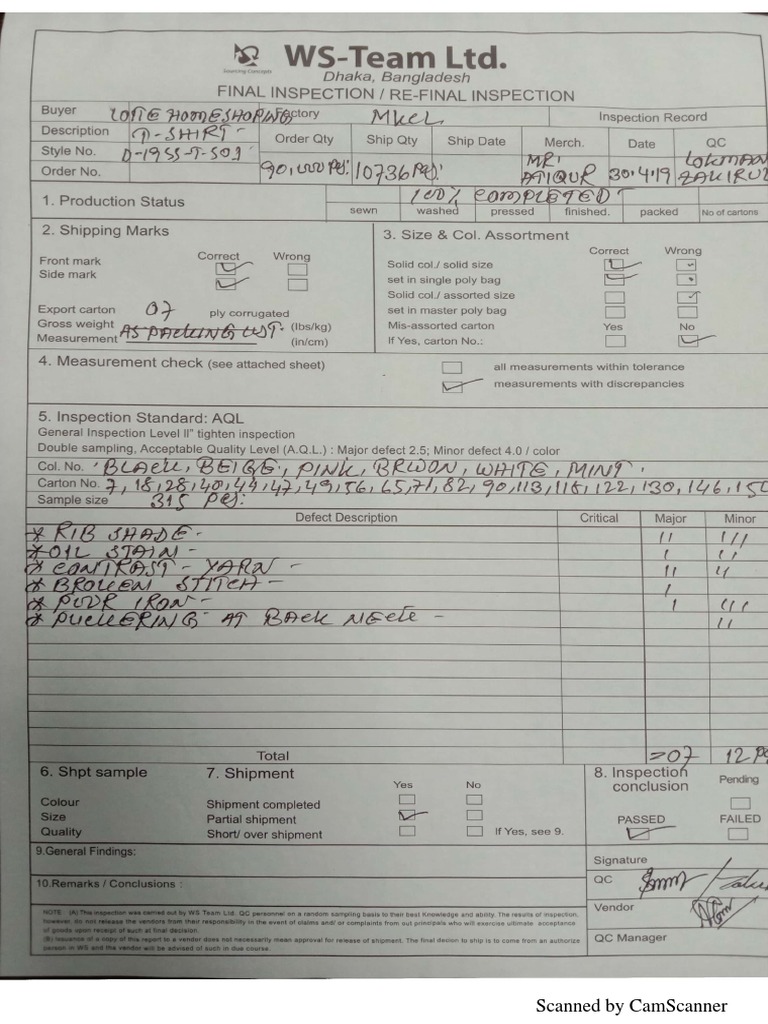 WS-Team Ltd.
Sourcing Concepts
Dhaka, Bangladesh
FINAL INSPECTION / RE-FINAL INSPECTION
Buyer LOTTE HOMESHOPING Factory MKCL Inspection Record
Description T-SHIRT Order Qty Ship Qty Ship Date Merch. Date QC
Style No. D-19SS-T-S01
Order No. 90,000 Pcs: 10736 Pcs: MR: ATIQUR 30.4.19 LOKMAN
1. Production Status 100% COMPLETED
sewn washed pressed finished. packed No of cartons
2. Shipping Marks 3. Size & Col. Assortment
Correct Wrong Correct Wrong
Front mark Solid col./ solid size
Side mark set in single poly bag
Solid col./ assorted size
Export carton 07 ply corrugated set in master poly bag
Gross weight AS PACKING LIST. (lbs/kg) Mis-assorted carton Yes No
Measurement (in/cm) If Yes, carton No.:
4. Measurement check (see attached sheet) all measurements within tolerance
measurements with discrepancies
5. Inspection Standard: AQL
General Inspection Level II" tighten inspection
Double sampling, Acceptable Quality Level (A.Q.L.) : Major defect 2.5; Minor defect 4.0 / color
Col. No. BLACK, BEIGE, PINK, BRWON, WHITE, MINT.
Carton No. 7, 18, 28, 40, 44, 47, 49, 56, 65, 71, 82, 90, 113, 118, 122, 130, 146, 150
Sample size 315 Pcs:
Defect Description Critical Major Minor
* RIB SHADE - 11 111
* OIL STAIN - 1 11
* CONTRAST - YARN - 11 11
* BROKEN STITCH - 1
* POOR IRON - 1 111
* PUCKERING AT BACK NECK - 11
Total =07 12 Ps
6. Shpt sample 7. Shipment 8. Inspection conclusion Pending
Yes No
Colour Shipment completed
Size Partial shipment PASSED FAILED
Quality Short/ over shipment If Yes, see 9.
9.General Findings: Signature
QC
10.Remarks / Conclusions :
Vendor
NOTE (A) This inspection was carried out by WS Team Ltd. QC personnel on a random sampling basis to their best Knowledge and ability. The results of inspection,
however, do not release the vendors from their responsibility in the event of claims and/ or complaints from out principals who will exercise ultimate acceptance
of goods upon receipt of such at final decision.
(B) Issuance of a copy of this report to a vendor does not necessarily mean approval for release of shipment. The final decision to ship is to come from an authorize
person in WS and the vendor will be advised of such in due course.
QC Manager
Scanned by CamScanner